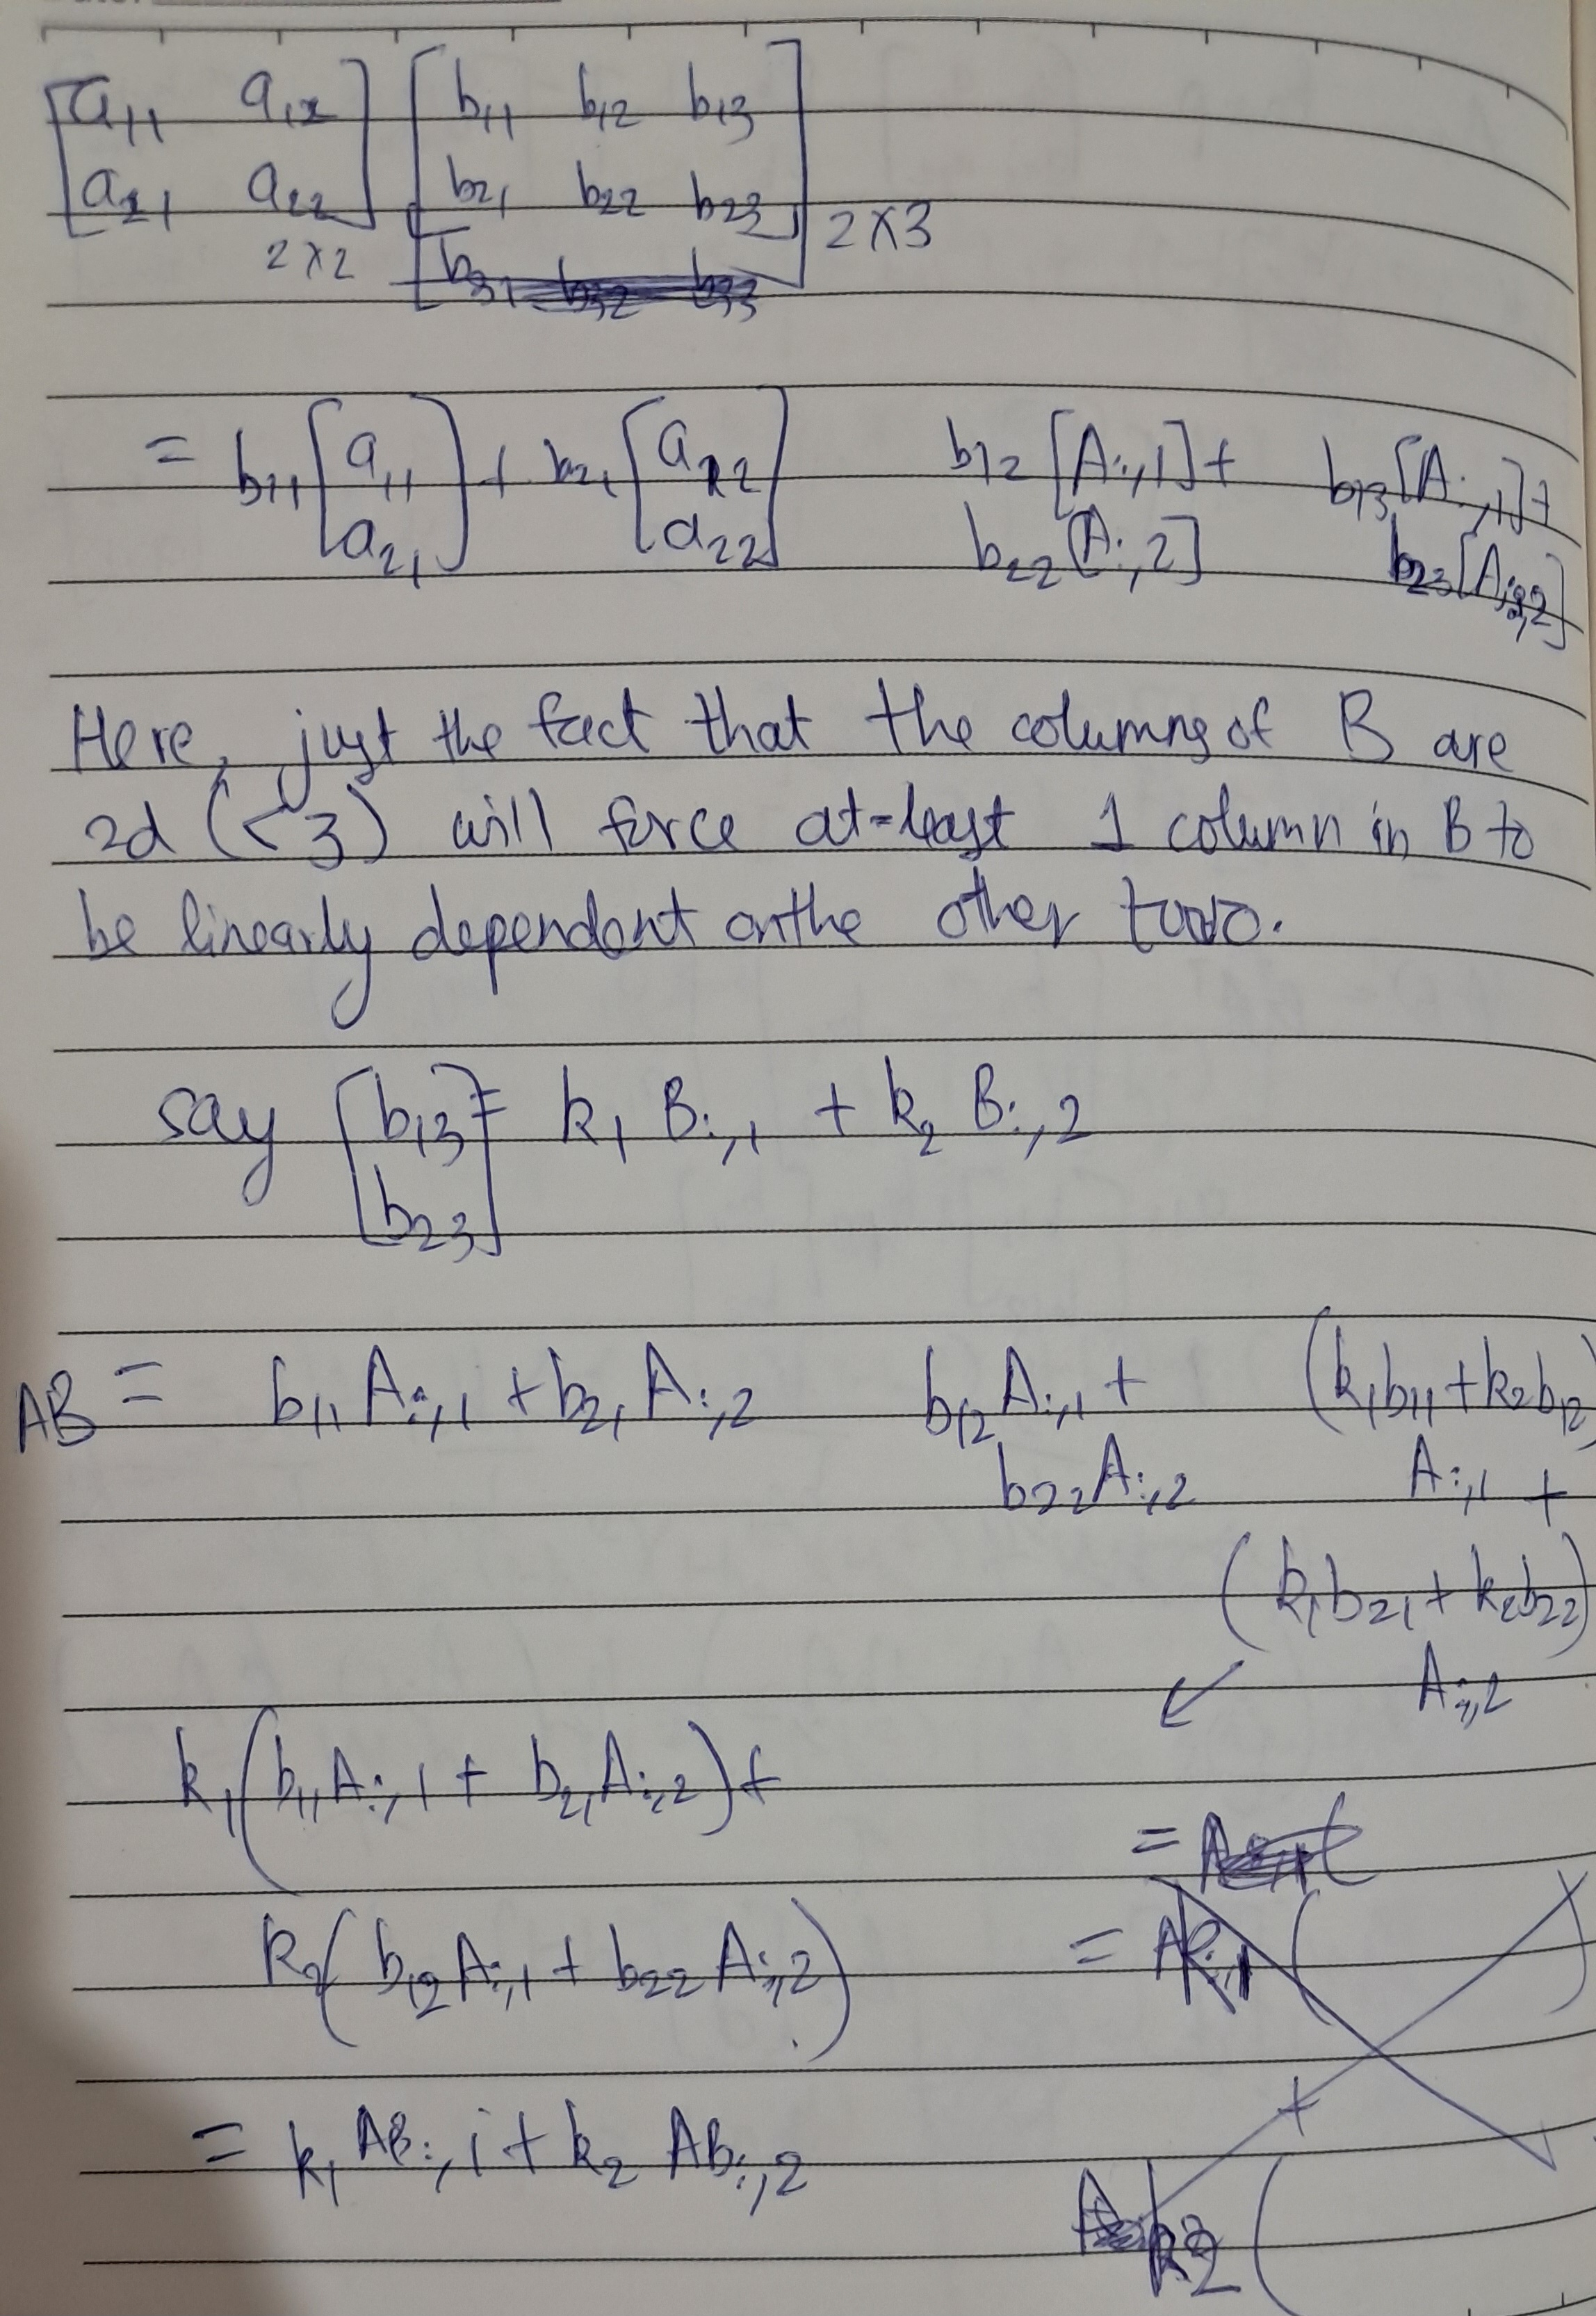 [a₁₁ a₁₂] [b₁₁ b₁₂ b₁₃]
[a₂₁ a₂₂] [b₂₁ b₂₂ b₂₃]
2x2 2x3
b₃₁ b₃₂ b₃₃
= b₁₁ [a₁₁ a₂₁] + b₂₁ [a₁₂ a₂₂] b₁₂ [A:,1] + b₁₃ [A:,1] +
b₂₂ [A:,2] b₂₃ [A:,2]
Here, just the fact that the columns of B are
2d (<3) will force at-least 1 column in B to
be linearly dependent on the other two.
say [b₁₃ b₂₃] = k₁ B:,1 + k₂ B:,2
AB = b₁₁ A:,1 + b₂₁ A:,2 b₁₂ A:,1 + (k₁b₁₁ + k₂b₁₂)
b₂₂ A:,2 A:,1 +
(k₁b₂₁ + k₂b₂₂)
A:,2
k₁ (b₁₁ A:,1 + b₂₁ A:,2) +
k₂ (b₁₂ A:,1 + b₂₂ A:,2)
= k₁ AB:,1 + k₂ AB:,2